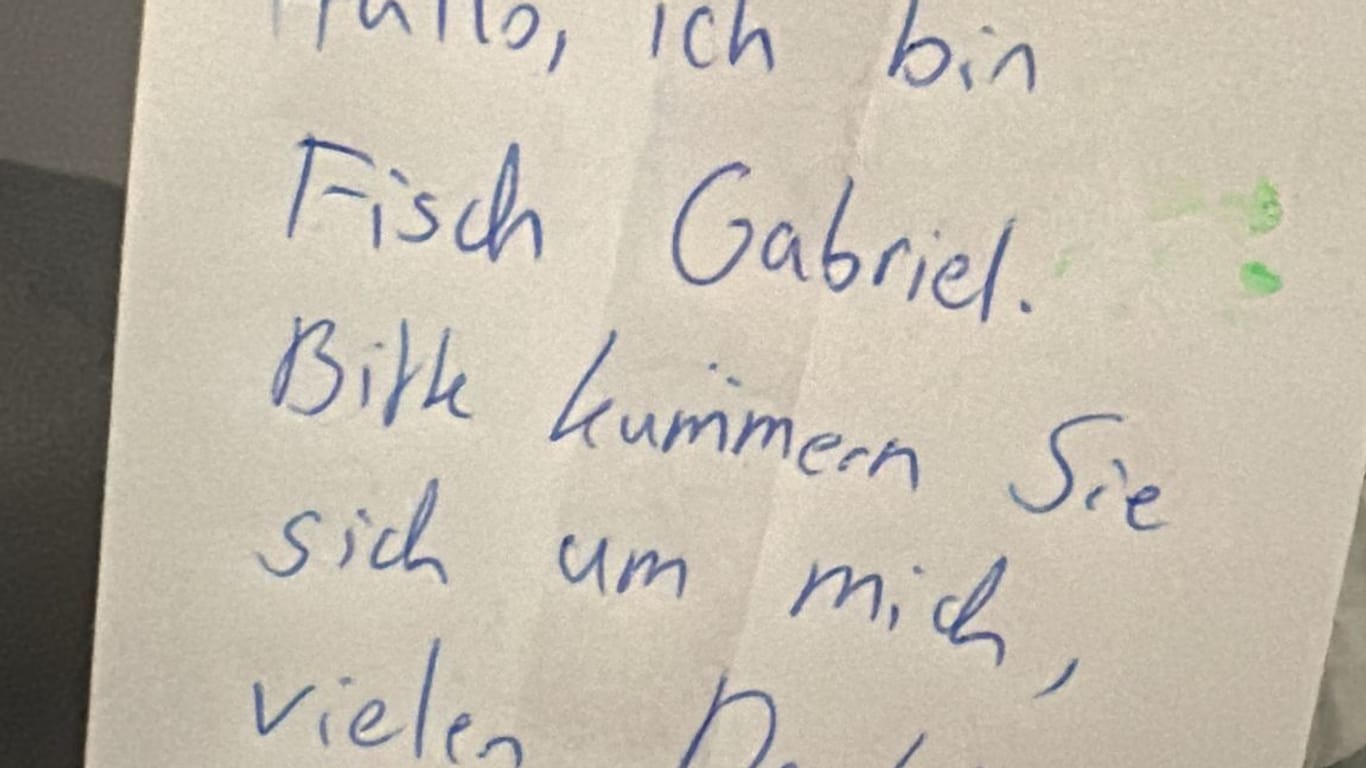 Hallo, ich bin
Fisch Gabriel.
Bitte kümmern Sie
sich um mich,
vielen